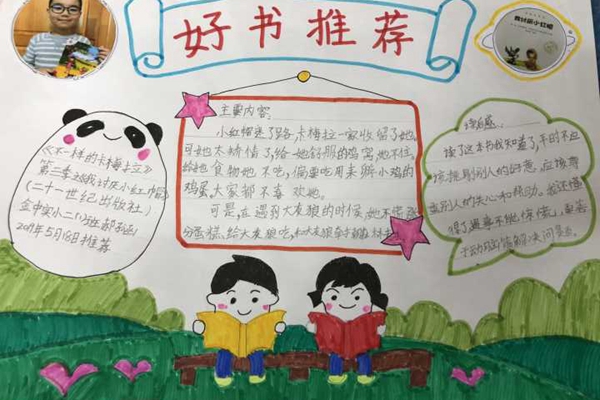 好书推荐
我讨厌小红帽
《不一样的卡梅拉》
第三季 我讨厌小红帽
(二十一世纪出版社)
金中实小二(1)班
2019年5月18日推荐
主要内容:
小红帽迷了路,卡梅拉一家收留了她,
可她太矫情了,给她舒服的鸡窝她不住,
给她食物她不吃,偏要吃用来孵小鸡的
鸡蛋,大家都不喜欢她。
可是,在遇到大灰狼的时候,她不慌张
分蛋糕给大灰狼吃,和大灰狼
读后感:
读了这本书我知道了,平时不应
该拒别人的好意,应该尊
重别人的关心和帮助。我还懂
得了遇事不能惊慌,要善
于动脑筋解决问题。